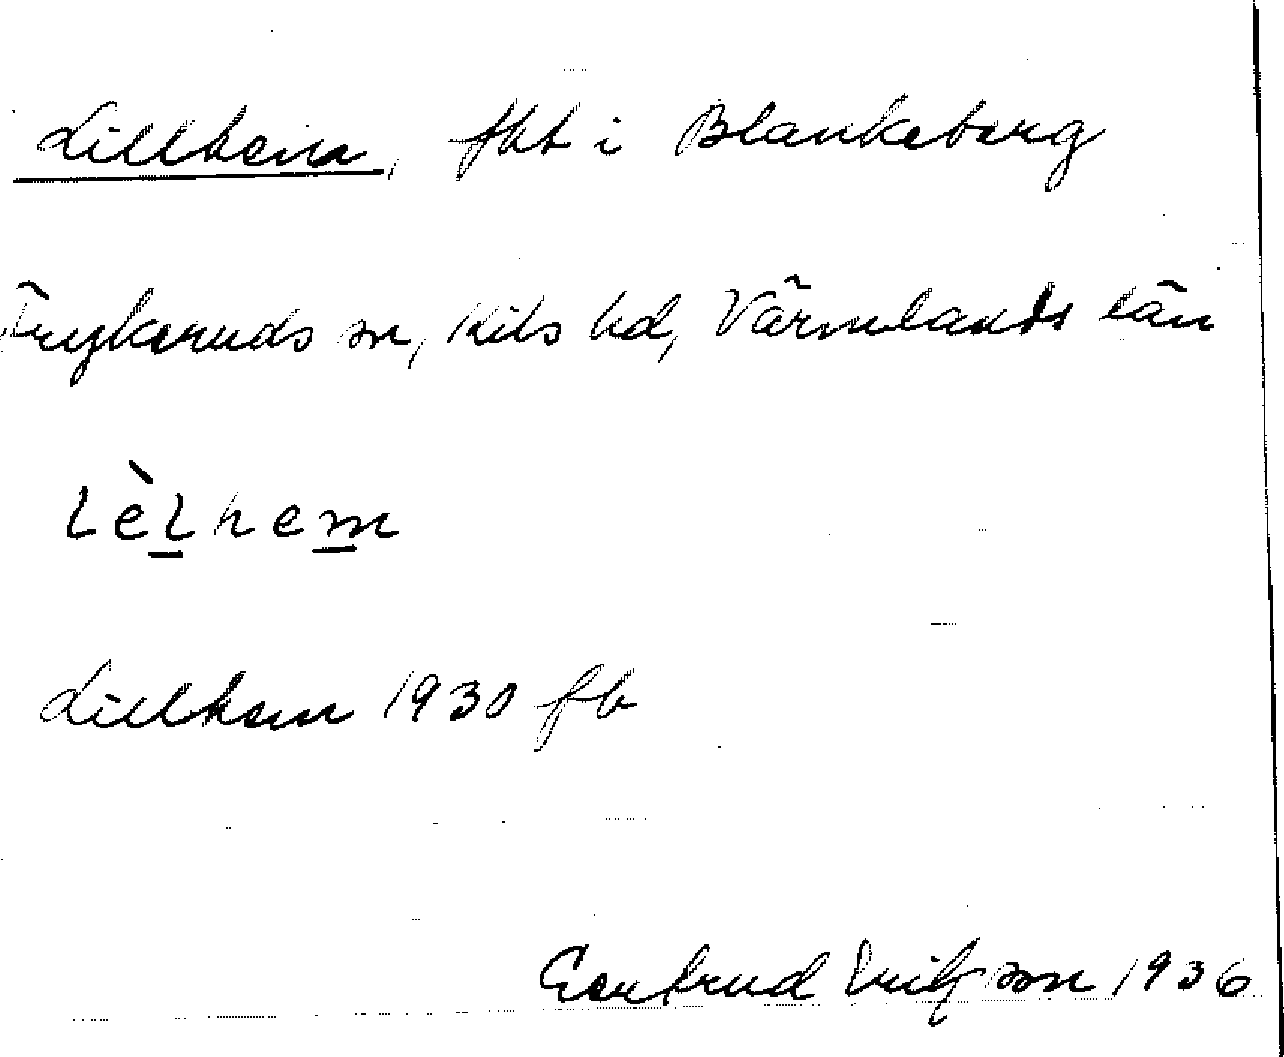 Lillhem, fht i Blankeberg
Frykeruds sn, Kils hd, Värmlands län
lèlhem
Lillhem 1930 fb
Gertrud Eriksson 1936